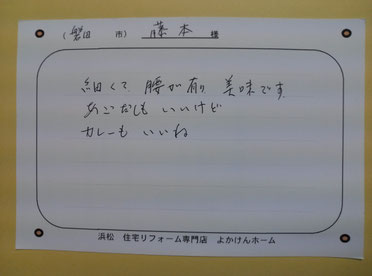 （磐田 市） 藤本 様
細くて 腰が有り 美味です
あごだしも いいけど
カレーも いいね
浜松 住宅リフォーム専門店 よかけんホーム